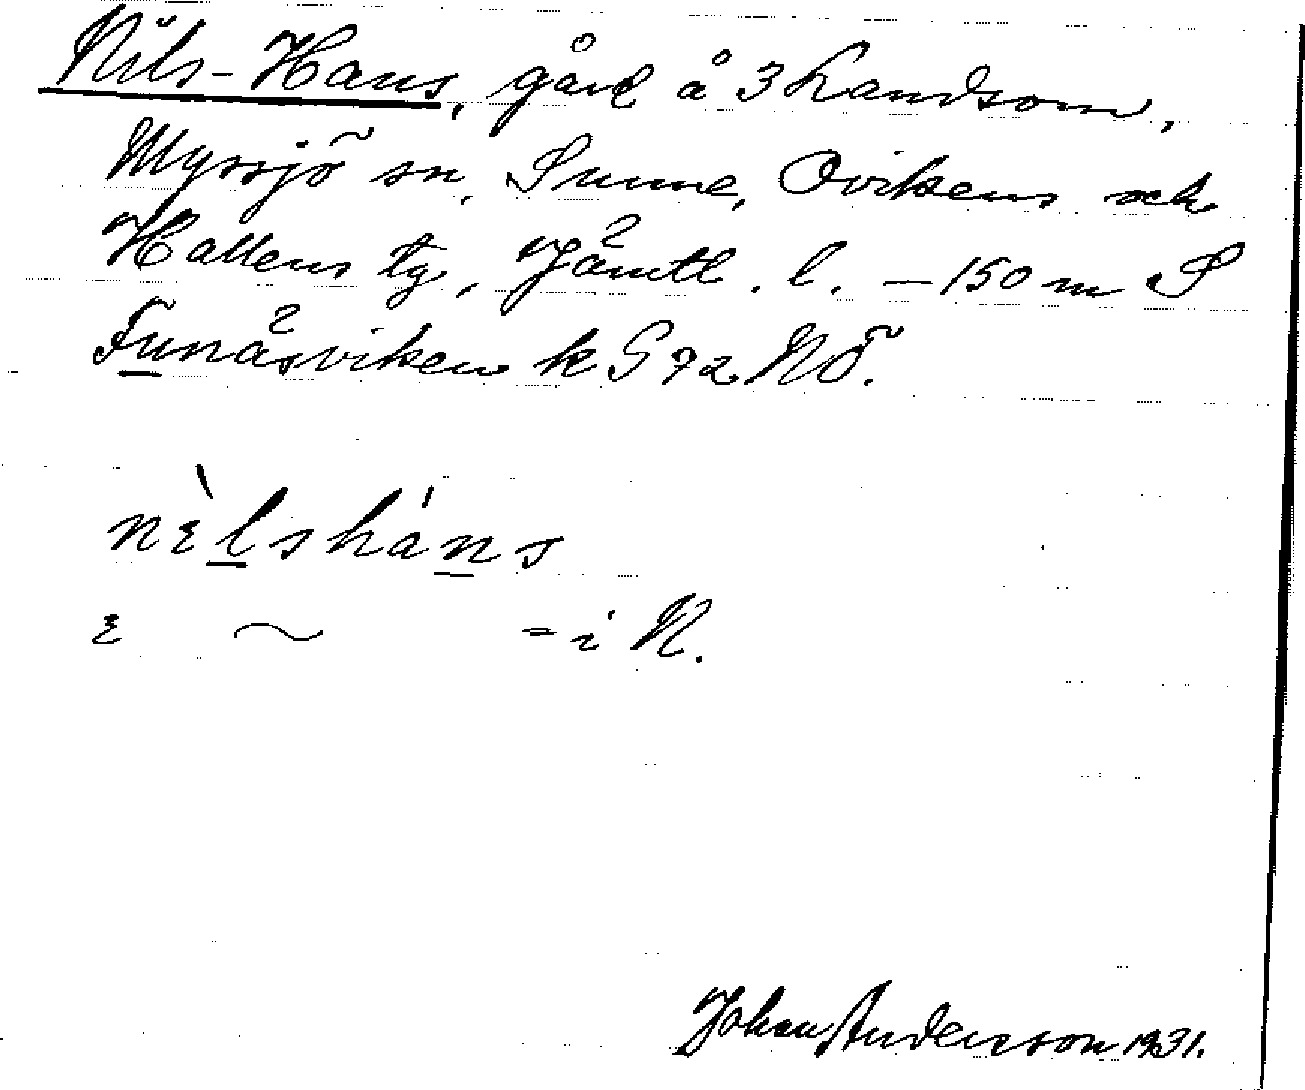 Nils-Hans, gård å 3 Landsom,
Myssjö sn, Sunne, Ovikens och
Hallens tg, Jämtl. l. – 150 m S
Funäsviken k G 72 NÖ.
nɛ̀lsháns
ɛ ~ = i N.
Johan Andersson 1931.